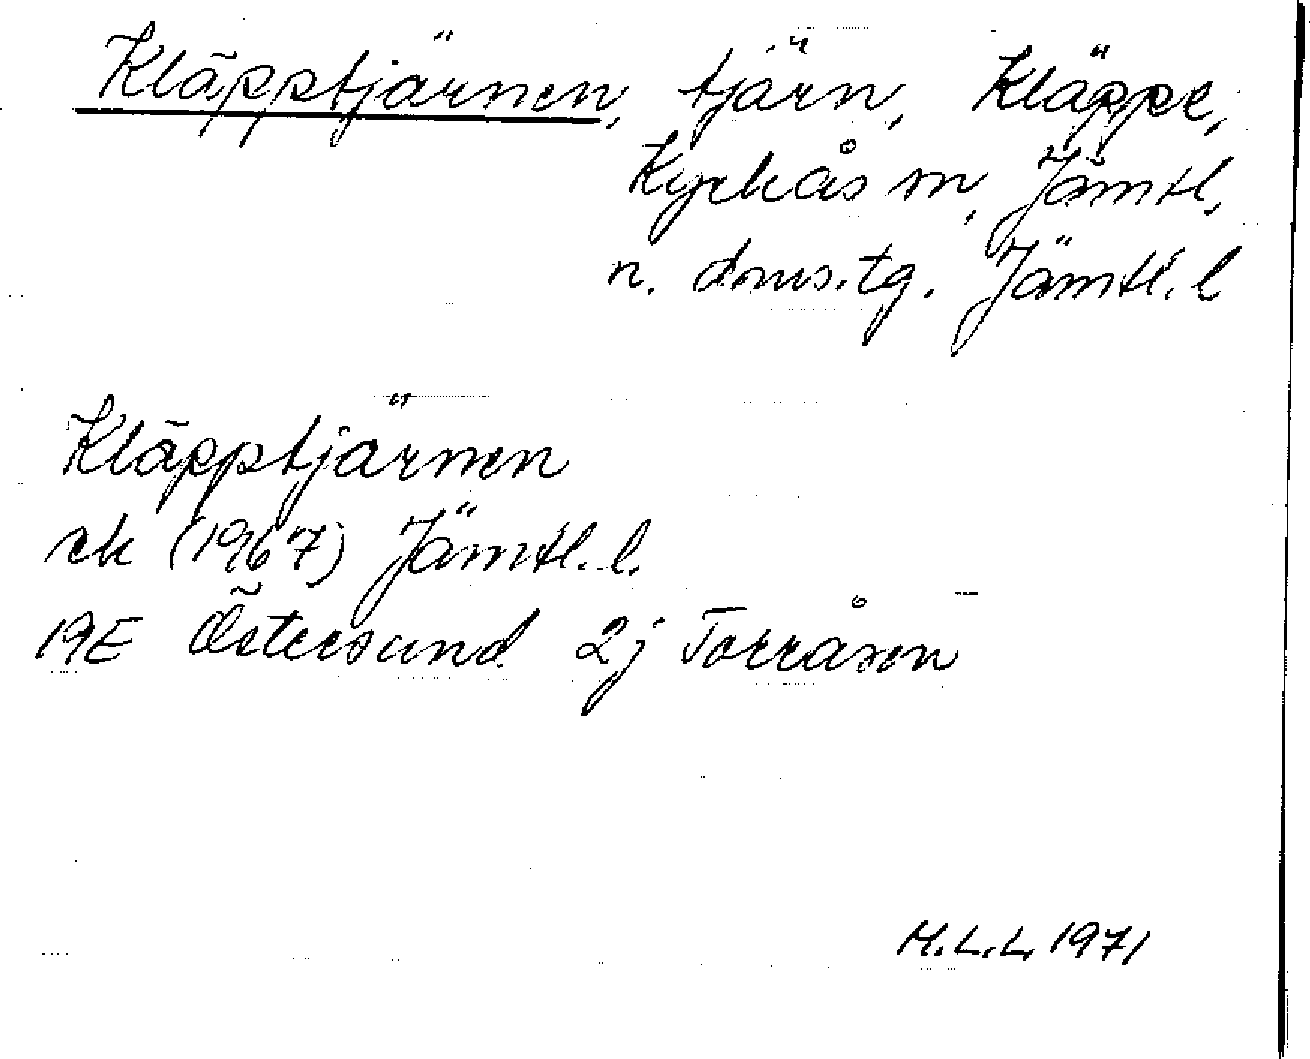 Kläpptjärnen, tjärn, Kläppe,
Kyrkås sn, Jämtl,
n. doms.tg. Jämtl. l
Kläpptjärnen
ek (1967) Jämtl. l.
19E Östersund 2j Torråsen
M.L.L. 1971